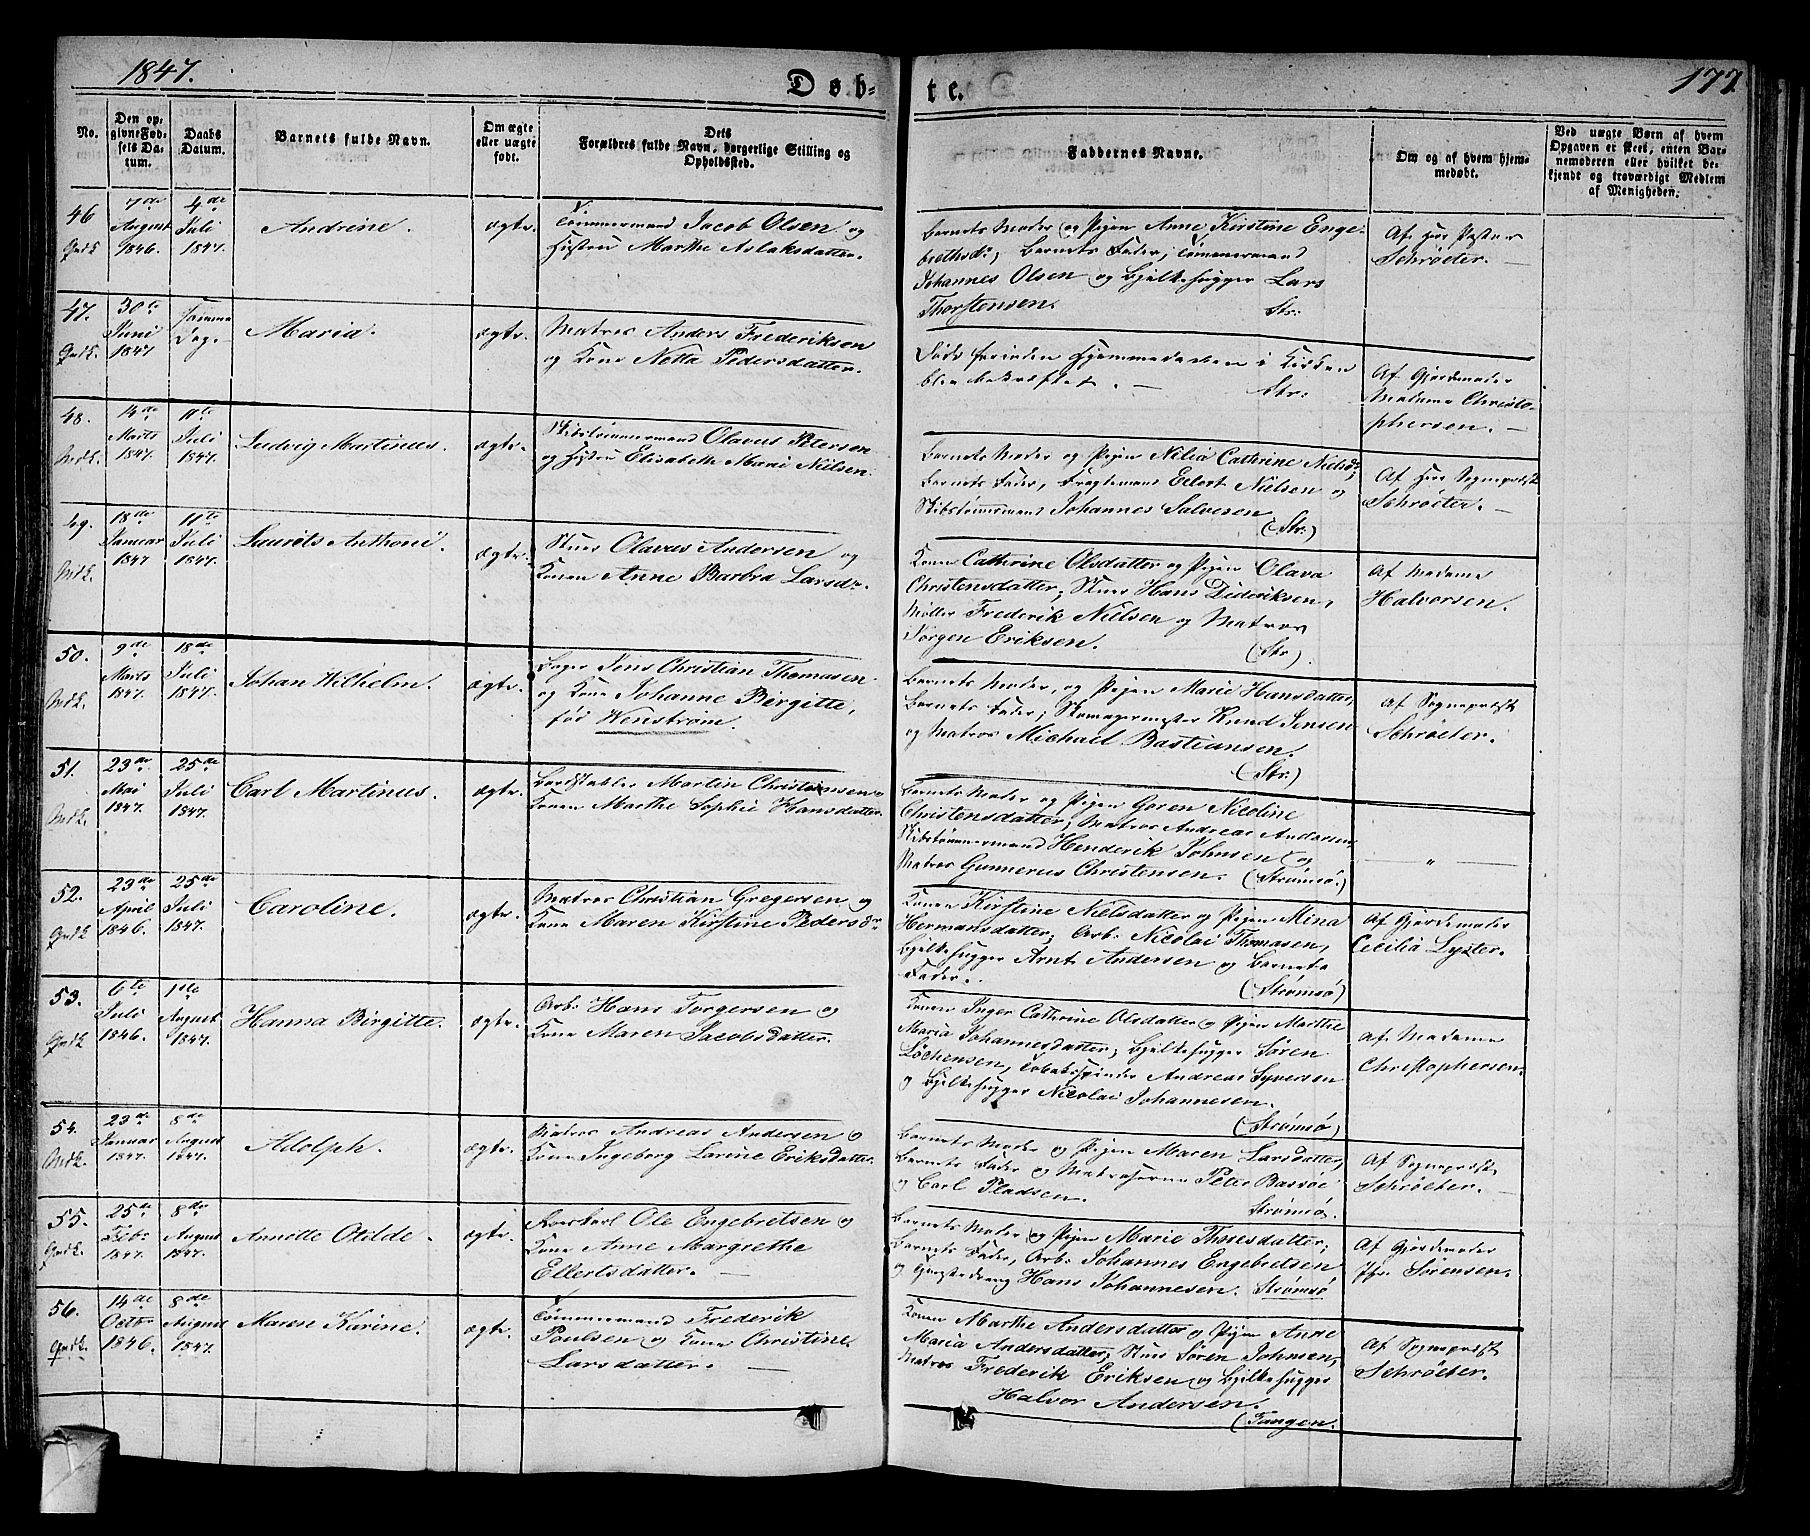 1847.
Døb-
te.
177
No.
Den op-
givne Fød-
sels Da-
tum.
Daabs
Datum.
Barnets fulde Navn.
Om ægte
eller uægte
født.
Dets
Forældres fulde Navn, borgerlige Stilling og
Opholdssted.
Faddernes Navne.
Om og af hvem hjem-
medøbt.
Ved uægte Børn af hvem
Opgaven er skeet, enten Bar-
nemoderen eller hvilket be-
kjendt og troværdigt Medlem
af Menigheden.
46
7de
August
1846.
4de
Juli
1847.
Andrine.
ægte.
Tømmermand Jacob Olsen og
Hustru Marthe Aslaksdatter.
Barnets Moder og Pigen Anne Kirstine Enge-
brethsdr; Barnets Fader, Tømmermand
Johannes Olsen og Bjelkehugger Lars
Thorstensen.
Str:
Af Hr Pastor
Schrøeter.
47.
30te
Juni
1847
Samme
Dag.
Maria.
ægte.
Matros Anders Frederiksen
og Kone Netta Pedersdatter.
Døde forinden Hjemmedaaben i Kirken
blev bekræftet.
Str:
Af Gjordemoder
Madame Christo-
phersen.
48.
14de
Marts
1847.
11te
Juli
1847.
Ludvig Martinus.
ægte.
Skibstømmermand Olavus Petersen
og Hustru Elisabeth Marie Nilsen.
Barnets Moder og Pigen Nilia Cathrine Nielsd;
Barnets Fader, Fragtemand Eilert Nielsen og
Skibstømmermand Johannes Salvesen
(Str:)
Af Herr Sogneprest
Schrøeter.
49.
18de
Januar
1847
11te
Juli
1847.
Laurits Anthoni.
ægte.
Stuer Olavus Andersen og
Konen Anne Barbra Larsdr.
Konen Cathrine Olsdatter og Pigen Olava
Christensdatter; Stuer Hans Dideriksen,
Møller Frederik Nielsen og Matros
Jørgen Eriksen.
(Str).
Af Madame
Halvorsen.
50.
9de
Marts
1847.
18de
Juli
1847.
Johan Wilhelm.
ægte.
Bager Jens Christian Thomasen
og Kone Johanne Birgitte,
fød Wenstrøm.
Barnets Moder, og Pigen Marie Hansdatter,
Barnets Fader; Skomagermester Knud Jensen
og Matros Michael Bastiansen.
(Str:)
Af Sogneprest
Schrøeter.
51.
23de
Mai
1847.
25de
Juli
1847.
Carl Martinus.
ægte.
Bordstabler Martin Christensen
Kone Marthe Sophie Hansdatter.
Barnets Moder og Pigen Goren Nicoline
Christensdatter; Matros Andreas Andersen,
Skibstømmermand Henderik Johnsen og
Matros Gunnerus Christensen. (Strømsø.)
"
52.
23de
April
1846.
25de
Juli
1847.
Caroline.
ægte.
Matros Christian Gregersen og
Kone Maren Kirstine Pedersdr
Konen Kirstine Nielsdatter og Pigen Mina
Hermansdatter; Arb: Nicolai Thomasen,
Bjelkehugger Arnt Andersen og Barnets
Fader.
(Strømsø)
Af Gjordemoder
Cecilia Lyzter.
53.
6te
Juli
1846.
1ste
August
1847.
Hanna Birgitte.
ægte.
Arb: Hans Torgersen og
Kone Maren Jacobsdatter.
Konen Inger Cathrine Olsdatter og Pigen Marthe
Maria Johannesdatter; Bjelkehugger Søren
Lochensen, Tobaksspinder Andreas Syversen
og Bjelkehugger Nicolai Johannesen.
(Strømsø)
Af Madame
Christophersen.
54.
23de
Januar
1847.
8de
August
1847.
Adolph.
ægte.
Matros Andreas Andersen og
Kone Ingeborg Larine Eriksdatter.
Barnets Moder og Pigen Maren Larsdatter,
Barnets Fader og Matroserne Peter Bassøe
og Carl Pladsen.
Strømsø.
Af Sogneprest
Schrøeter.
55.
25de
Febr
1847.
8de
August
1847.
Annette Otilde.
ægte.
Roerskarl Ole Engebretsen og
Kone Anne Margrethe
Ellertsdatter.
Barnets Moder og Pigen Marie Thoresdatter;
Barnets Fader, Arb: Johannes Engebretsen
og Gangstadreng Hans Johannesen. Strømsø
Af Gjordemoder
Sørensen.
56.
14de
Octb
1846.
8de
August
1847.
Maren Karine.
ægte.
Tømmermand Frederik
Poulsen og Kone Christine
Larsdatter.
Konen Marthe Andersdatter og Pigen Anne
Maria Andersdatter; Stuer Søren Johnsen,
Matros Frederik Eriksen og Bjelkehugger
Halvor Andersen.
(Tangen.
Af Sogneprest
Schrøeter.